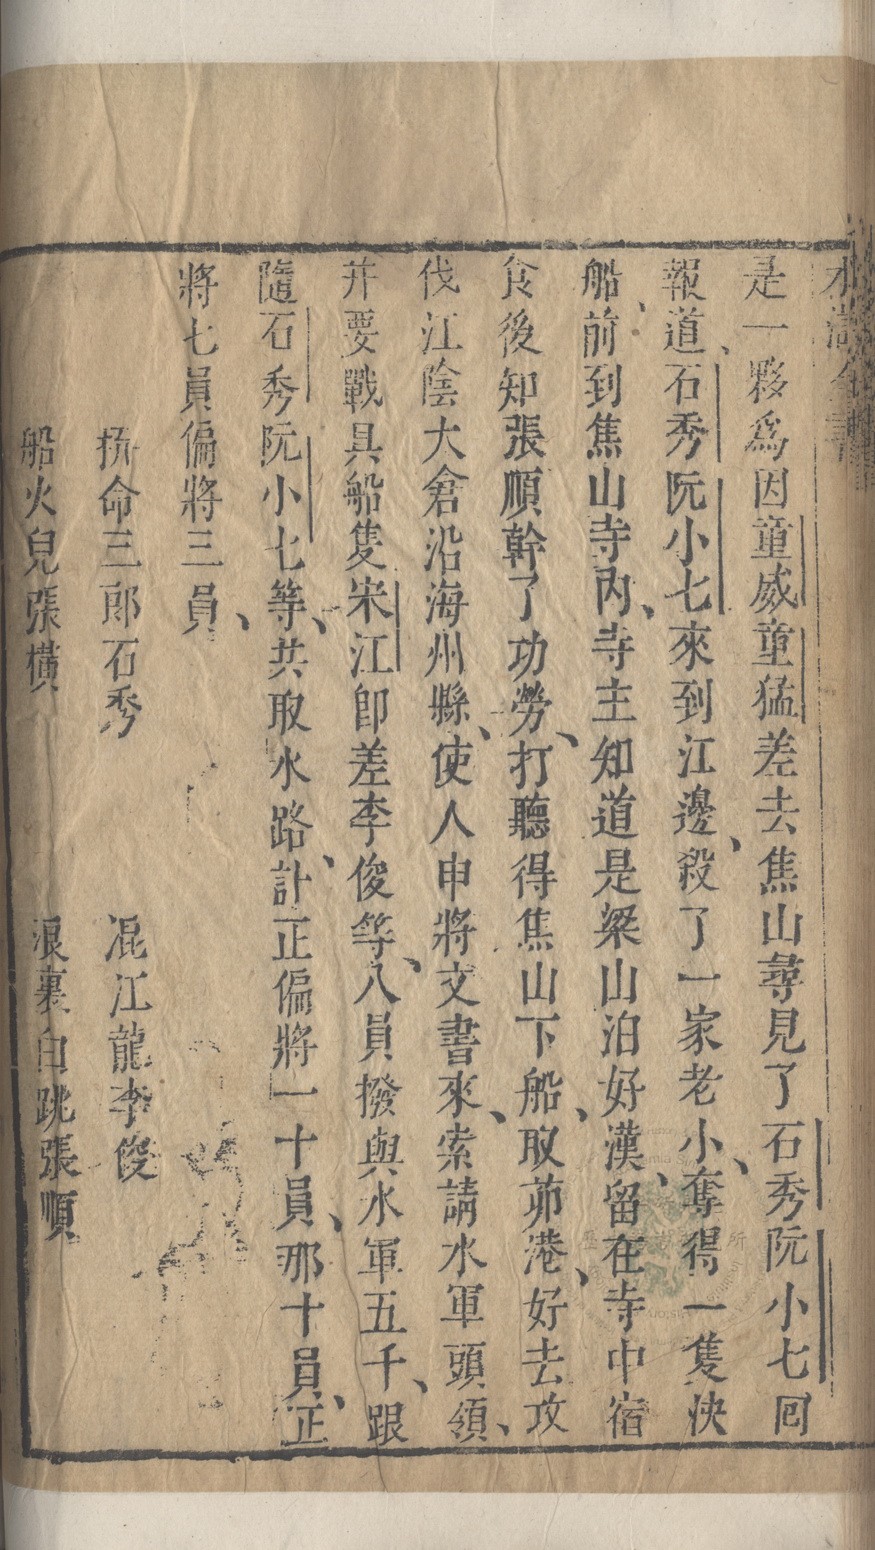 是一夥爲因童威童猛差去焦山尋見了石秀阮小七回
報道、石秀阮小七來到江邊、殺了一家老小、奪得一隻快
船、前到焦山寺內、寺主知道是梁山泊好漢、留在寺中宿
食後知張順幹了功勞、打聽得焦山下船、取茆港、好去攻
伐江陰大倉沿海州縣、使人申將文書來、索請水軍頭領、
幷要戰具船隻宋江卽差李俊等、八員撥與水軍五千、跟
隨石秀阮小七等、共取水路、計正偏將一十員、那十員、正
將七員偏將三員、
拚命三郎石秀 混江龍李俊
船火兒張橫 浪裏白跳張順